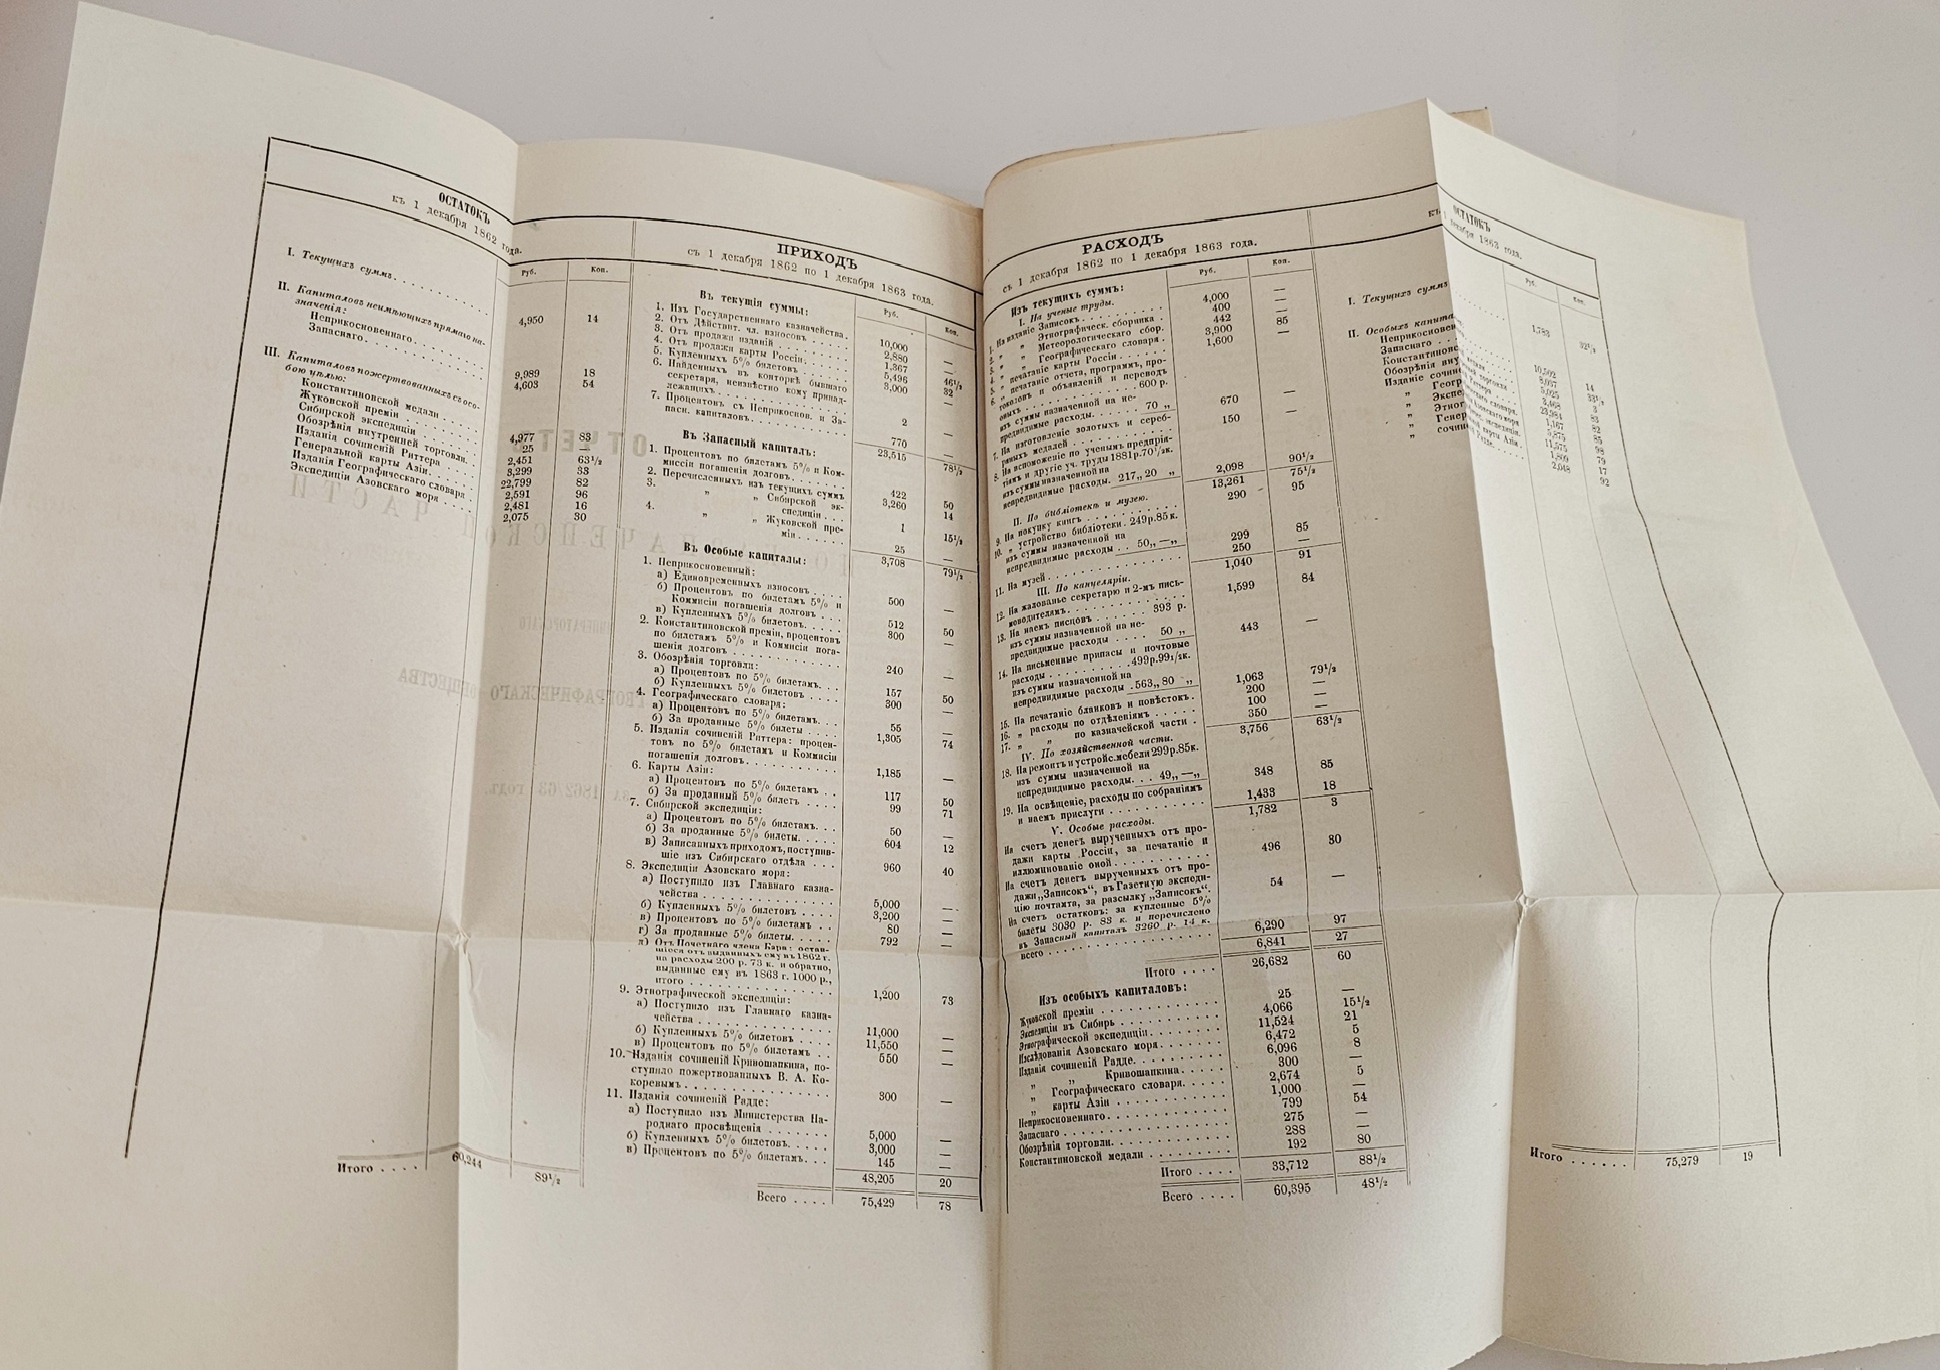 ОСТАТОКЪ
къ 1 декабря 1862 года.
Руб. Коп.
I. Текущихъ суммъ. 4,950 14
II. Капиталовъ неимѣющихъ прямаго на-
значенія:
Неприкосновеннаго. 9,989 18
Запаснаго. 4,603 54
III. Капиталовъ пожертвованныхъ съ осо-
бою цѣлью:
Константиновской медали 4,977 83
Жуковской преміи 25 —
Сибирской экспедиціи 2,451 63½
Обозрѣнія внутренней торговли. 3,299 33
Изданія сочиненій Риттера 22,799 82
Генеральной карты Азіи. 2,591 96
Изданія Географическаго словаря 2,481 16
Экспедиціи Азовскаго моря 2,075 30
Итого 60,244 89½
ПРИХОДЪ
съ 1 декабря 1862 по 1 декабря 1863 года.
Руб. Коп.
Въ текущія суммы:
1. Изъ Государственнаго казначейства. 10,000 —
2. Отъ Дѣйствит. чл. взносовъ 2,880 —
3. Отъ продажи изданій 1,367 46½
4. Отъ продажи карты Россіи. 5,496 32
5. Купленныхъ 5% билетовъ 3,000 —
6. Найденныхъ въ конторкѣ бывшаго
секретаря, неизвѣстно кому принад-
лежащихъ 2 —
7. Процентовъ съ Неприкоснов. и За-
паси. капиталовъ. 770 —
23,515 78½
Въ Запасный капиталъ:
1. Процентовъ по билетамъ 5% и Ком-
миссіи погашенія долговъ. 422 50
2. Перечисленныхъ изъ текущихъ суммъ 3,260 14
3. „ „ Сибирской эк-
спедиціи 1 15½
4. „ „ Жуковской пре-
міи. 25 —
3,708 79½
Въ Особые капиталы:
1. Неприкосновенный:
а) Единовременныхъ взносовъ 500 —
б) Процентовъ по билетамъ 5% и
Коммисіи погашенія долговъ 512 50
в) Купленныхъ 5% билетовъ. 300 —
2. Константиновской преміи, процентовъ
по билетамъ 5% и Коммисіи пога-
шенія долговъ 240 —
3. Обозрѣнія торговли:
а) Процентовъ по 5% билетамъ. 157 50
б) Купленныхъ 5% билетовъ 300 —
4. Географическаго словаря:
а) Процентовъ по 5% билетамъ. 55 —
б) За проданные 5% билеты 1,305 74
5. Изданія сочиненій Риттера: процен-
товъ по 5% билетамъ и Коммисіи
погашенія долговъ. 1,185 —
6. Карты Азіи:
а) Процентовъ по 5% билетамъ 117 50
б) За проданный 5% билетъ 99 71
7. Сибирской экспедиціи:
а) Процентовъ по 5% билетамъ. 50 —
б) За проданные 5% билеты. 604 12
в) Записанныхъ приходомъ, поступив-
шіе изъ Сибирскаго отдѣла 960 40
8. Экспедиціи Азовскаго моря:
а) Поступило изъ Главнаго казна-
чейства 5,000 —
б) Купленныхъ 5% билетовъ 3,200 —
в) Процентовъ по 5% билетамъ 80 —
г) За проданные 5% билеты. 792 —
д) Отъ Почетнаго члена Бэра: остав-
шіеся отъ выданныхъ ему въ 1862 г.
на расходы 200 р. 73 к. и обратно,
выданные ему въ 1863 г. 1000 р.,
итого 1,200 73
9. Этнографической экспедиціи:
а) Поступило изъ Главнаго казна-
чейства 11,000 —
б) Купленныхъ 5% билетовъ 11,550 —
в) Процентовъ по 5% билетамъ 550 —
10. Изданія сочиненій Кривошапкина, по-
ступило пожертвованныхъ В. А. Ко-
коревымъ 300 —
11. Изданія сочиненій Радде:
а) Поступило изъ Министерства На-
роднаго просвѣщенія 5,000 —
б) Купленныхъ 5% билетовъ. 3,000 —
в) Процентовъ по 5% билетамъ. 145 —
48,205 20
Всего 75,429 78
РАСХОДЪ
съ 1 декабря 1862 по 1 декабря 1863 года.
Руб. Коп.
Изъ текущихъ суммъ:
I. На ученые труды.
1. На изданіе Записокъ. 4,000 —
2. „ „ Этнографическ. сборника 400 —
3. „ „ Метеорологическаго сбор. 442 85
4. „ „ Географическаго словаря. 3,900 —
5. „ печатаніе карты Россіи 1,600
6. „ печатаніе отчета, программъ, про-
токоловъ и объявленій и переводъ
оныхъ 600 р.
изъ суммы назначенной на не-
предвидимые расходы. 70 „ 670 —
7. На изготовленіе золотыхъ и сереб-
ряныхъ медалей 150 —
8. На вспоможеніе по ученымъ предпрія-
тіямъ и другіе уч. труды 1881 р. 70½к.
изъ суммы назначенной на
непредвидимые расходы. 217 „ 20 „ 2,098 90½
13,261 75½
II. По библіотекѣ и музею.
9. На покупку книгъ 290 95
10. „ устройство библіотеки. 249 р. 85 к.
изъ суммы назначенной на
непредвидимые расходы 50 „ — „ 299 85
11. На музей 250 —
1,040 91
III. По канцеляріи.
12. На жалованье секретарю и 2-мъ пись-
моводителямъ. 1,599 84
13. На наемъ писцовъ 393 р.
изъ суммы назначенной на не-
предвидимые расходы 50 „ 443 —
14. На письменные припасы и почтовые
расходы 499 р. 99½к.
изъ суммы назначенной на
непредвидимые расходы 563 „ 80 „ 1,063 79½
15. На печатаніе бланковъ и повѣстокъ. 200 —
16. „ расходы по отдѣленіямъ 100 —
17. „ „ по казначейской части 350 —
3,756 63½
IV. По хозяйственной части.
18. На ремонтъ и устройс. мебели 299 р. 85 к.
изъ суммы назначенной на
непредвидимые расходы. 49 „ — „ 348 85
19. На освѣщеніе, расходы по собраніямъ
и наемъ прислуги 1,433 18
1,782 3
V. Особые расходы.
На счетъ денегъ вырученныхъ отъ про-
дажи карты Россіи, за печатаніе и
иллюминованіе оной 496 30
На счетъ денегъ вырученныхъ отъ про-
дажи „Записокъ“, въ Газетную экспеди-
цію почтамта, за разсылку „Записокъ“. 54 —
На счетъ остатковъ: за купленные 5%
билеты 3030 р. 83 к. и перечислено
въ Запасный капиталъ 3260 р. 14 к.
всего 6,290 97
6,841 27
Итого 26,682 60
Изъ особыхъ капиталовъ:
Жуковской преміи 25 —
Экспедиціи въ Сибирь 4,066 15½
Этнографической экспедиціи. 11,524 21
Изслѣдованія Азовскаго моря. 6,472 5
Изданія сочиненій Радде. 6,096 8
„ „ Кривошапкина. 300 —
„ Географическаго словаря. 2,674 5
„ карты Азіи 1,000 —
Неприкосновеннаго. 799 54
Запаснаго 275 —
Обозрѣнія торговли. 288 —
Константиновской медали 192 80
Итого 33,712 88½
Всего 60,395 48½
ОСТАТОКЪ
къ декабря 1863 года.
Руб. Коп.
I. Текущихъ суммъ 1,783 32½
II. Особыхъ капита
Неприкосновен
Запаснаго
Константиновс
Обозрѣнія вну
Изданіе сочин
„ Геогр
„ Экспе
„ Этног
„ Генер
„ сочин
Итого 75,279 19